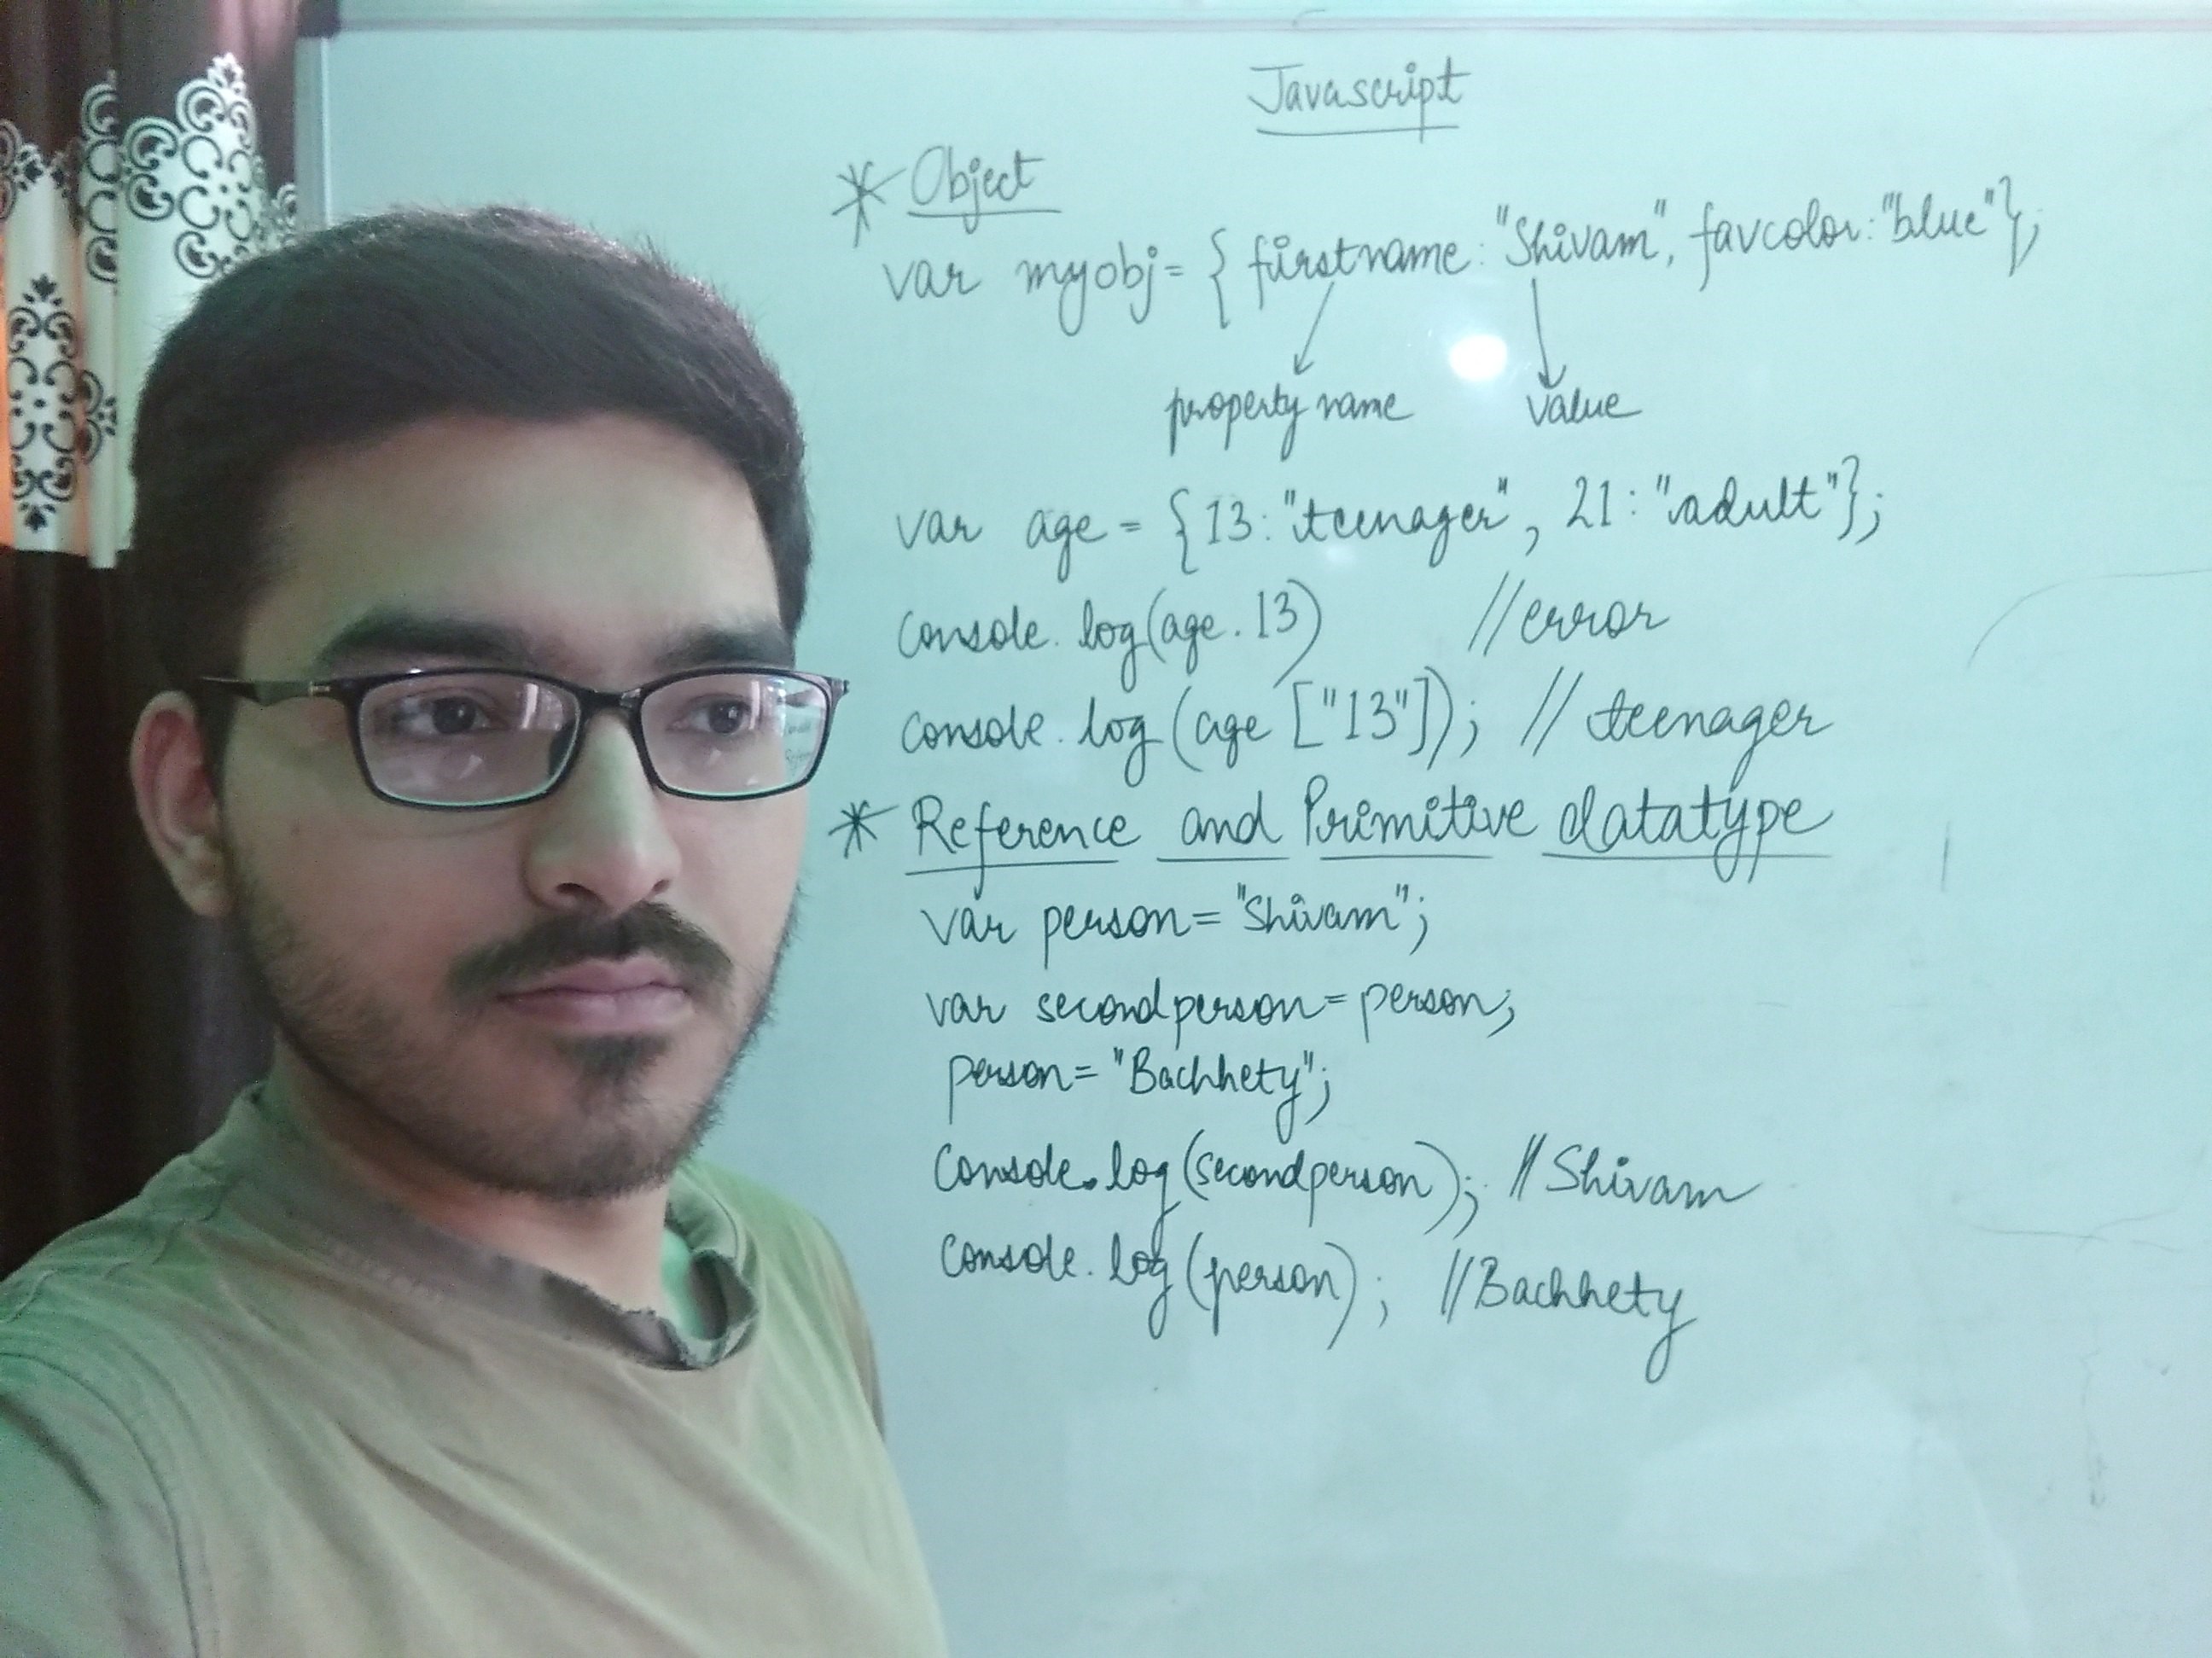 Javascript
* Object
var myobj = { firstname : "Shivam", favcolor : "blue"};
property name value
var age = {13: "teenager", 21: "adult"};
console.log(age.13) //error
console.log(age ["13"]); // teenager
* Reference and Primitive datatype
var person = "Shivam";
var secondperson = person;
person = "Bachhety";
Console.log(secondperson); //Shivam
Console.log(person); //Bachhety